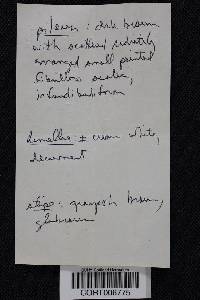 pileus : dark brown
with scattered radiately
arranged small pointed
fibrillose scales,
infundibuliform
Lamellae ± cream white,
decurrent
stipe : grayish brown,
glabrous
CORT006775